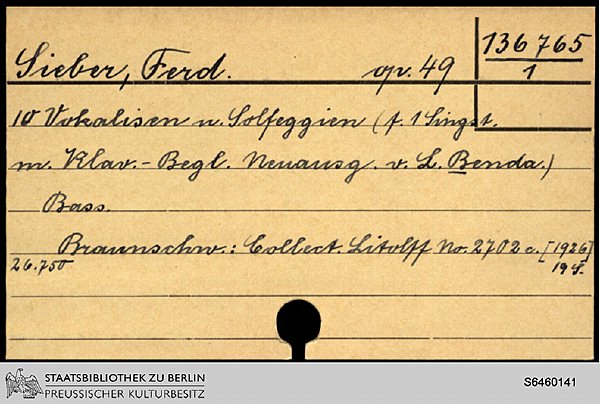 Sieber, Ferd. op. 49 136 765
1
10 Vokalisen u. Solfeggien (f. 1 Singst.
m. Klav.-Begl. Neuausg. v. L. Benda.)
Bass.
Braunschw.: Collect. Litolff No. 2702 c. [1926]
26.750
STAATSBIBLIOTHEK ZU BERLIN
PREUSSISCHER KULTURBESITZ
S6460141